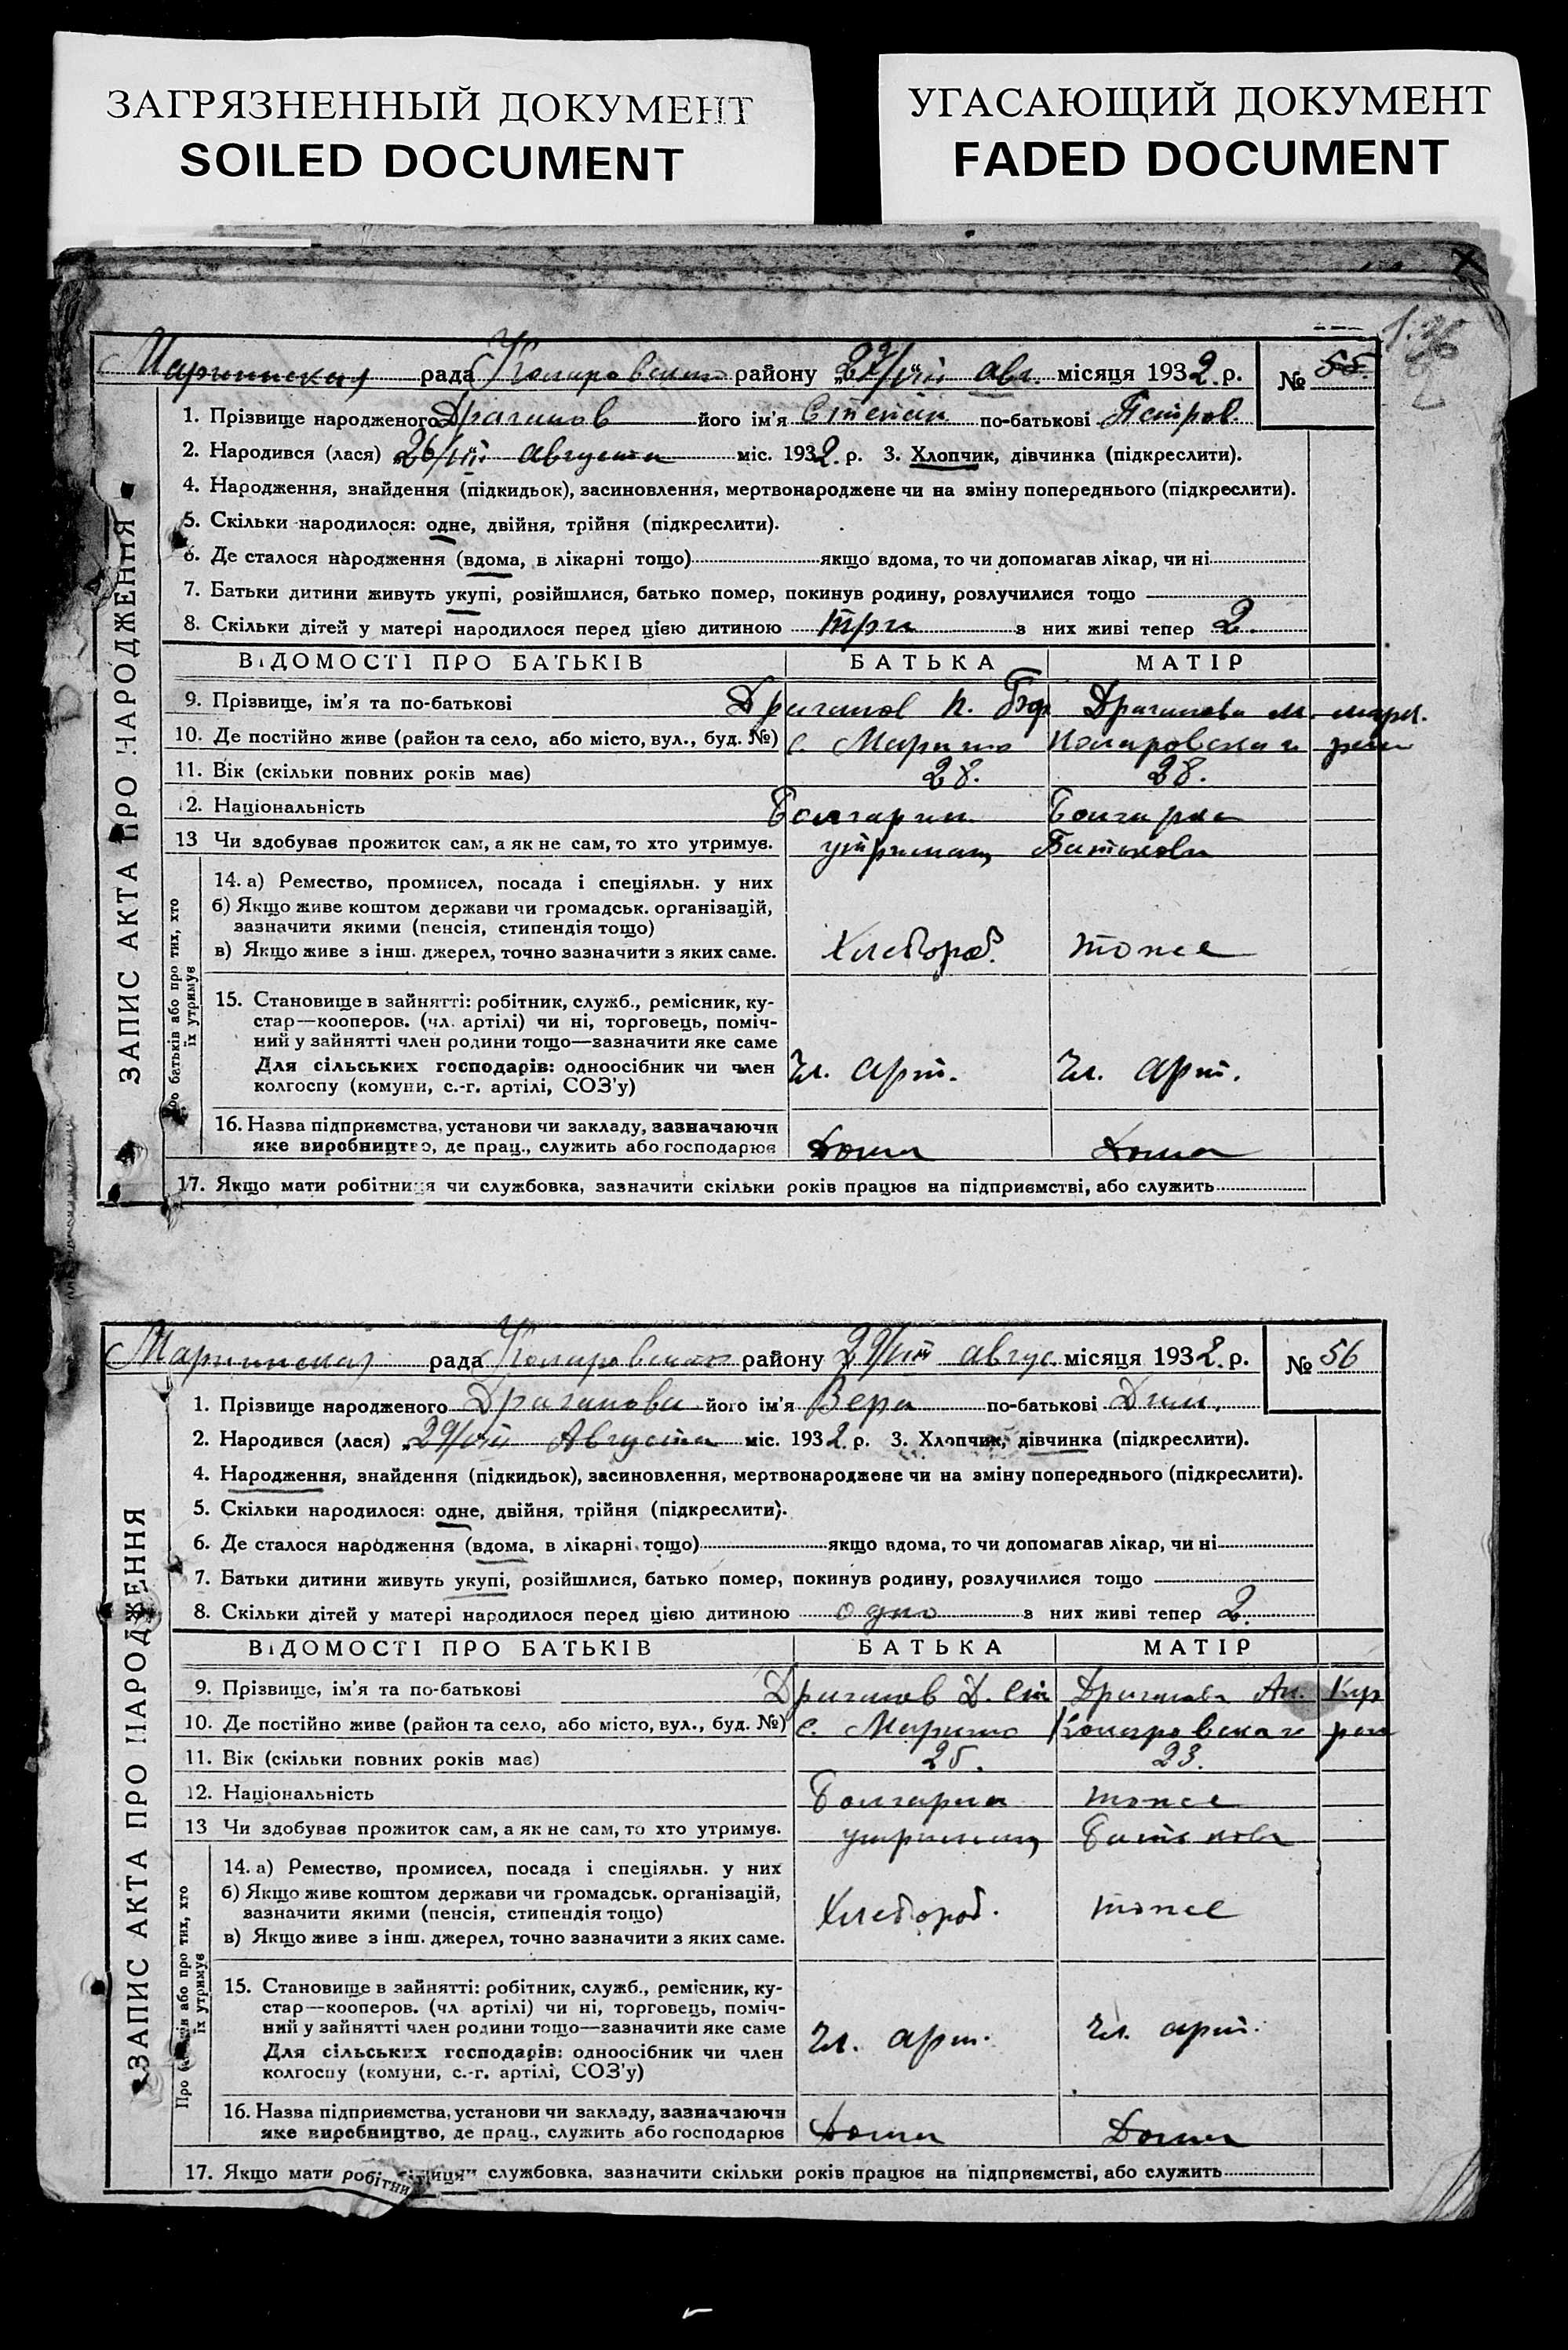 ЗАГРЯЗНЕННЫЙ ДОКУМЕНТ
SOILED DOCUMENT
УГАСАЮЩИЙ ДОКУМЕНТ
FADED DOCUMENT
рада району авг. місяця 1932 р. № 55.
1. Прізвище народженого Драганов його ім'я Степан по-батькові Петров.
2. Народився (лася) „26/VIII" августа міс. 1932 р. 3. Хлопчик, дівчинка (підкреслити).
4. Народження, знайдення (підкидьок), засиновлення, мертвонароджене чи на зміну попереднього (підкреслити).
5. Скільки народилося: одне, двійня, трійня (підкреслити).
6. Де сталося народження (вдома, в лікарні тощо) якщо вдома, то чи допомагав лікар, чи ні
7. Батьки дитини живуть укупі, розійшлися, батько помер, покинув родину, розлучилися тощо
8. Скільки дітей у матері народилося перед цією дитиною три з них живі тепер 2.
ВІДОМОСТІ ПРО БАТЬКІВ БАТЬКА МАТІР
9. Прізвище, ім'я та по-батькові Драганов П. Драганова М.
10. Де постійно живе (район та село, або місто, вул., буд. №) с.
11. Вік (скільки повних років має) 28. 28.
12. Національність Болгарин Болгарка
13 Чи здобував прожиток сам, а як не сам, то хто утримує.
14. а) Ремество, промисел, посада і спеціяльн. у них
б) Якщо живе коштом держави чи громадськ. організацій,
зазначити якими (пенсія, стипендія тощо)
в) Якщо живе з інш. джерел, точно зазначити з яких саме. Хлебороб. тоже
15. Становище в зайнятті: робітник, служб., ремісник, ку-
стар—кооперов. (чл. артілі) чи ні, торговець, поміч-
ний у зайнятті член родини тощо—зазначити яке саме
Для сільських господарів: одноосібник чи член
колгоспу (комуни, с.-г. артілі, СОЗ'у) Чл. арт. Чл. арт.
16. Назва підприємства, установи чи закладу, зазначаючи
яке виробництво, де прац., служить або господарює Дома Дома
17. Якщо мати робітниця чи службовка, зазначити скільки років працює на підприємстві, або служить
ЗАПИС АКТА ПРО НАРОДЖЕННЯ
або про тих, хто
їх утримує
рада району 29/VIII август місяця 1932 р. № 56
1. Прізвище народженого Драганова його ім'я Вера по-батькові Дим.
2. Народився (лася) „29/VIII" Августа міс. 1932 р. 3. Хлопчик, дівчинка (підкреслити).
4. Народження, знайдення (підкидьок), засиновлення, мертвонароджене чи на зміну попереднього (підкреслити).
5. Скільки народилося: одне, двійня, трійня (підкреслити).
6. Де сталося народження (вдома, в лікарні тощо) якщо вдома, то чи допомагав лікар, чи ні
7. Батьки дитини живуть укупі, розійшлися, батько помер, покинув родину, розлучилися тощо
8. Скільки дітей у матері народилося перед цією дитиною одно з них живі тепер 2.
ВІДОМОСТІ ПРО БАТЬКІВ БАТЬКА МАТІР
9. Прізвище, ім'я та по-батькові Драганов Д. Драганова Ан.
10. Де постійно живе (район та село, або місто, вул., буд. №) с.
11. Вік (скільки повних років має) 25. 23.
12. Національність тоже
13 Чи здобував прожиток сам, а як не сам, то хто утримує.
14. а) Ремество, промисел, посада і спеціяльн. у них
б) Якщо живе коштом держави чи громадськ. організацій,
зазначити якими (пенсія, стипендія тощо)
в) Якщо живе з інш. джерел, точно зазначити з яких саме. Хлебороб. тоже
15. Становище в зайнятті: робітник, служб., ремісник, ку-
стар—кооперов. (чл артілі) чи ні, торговець, поміч-
ний у зайнятті член родини тощо—зазначити яке саме
Для сільських господарів: одноосібник чи член
колгоспу (комуни, с.-г. артілі, СОЗ'у) Чл. арт. Чл. арт.
16. Назва підприємства, установи чи закладу, зазначаючи
яке виробництво, де прац., служить або господарює Дома Дома
17. Якщо мати службовка, зазначити скільки років працює на підприємстві, або служить
ЗАПИС АКТА ПРО НАРОДЖЕННЯ
або про тих, хто
їх утримує